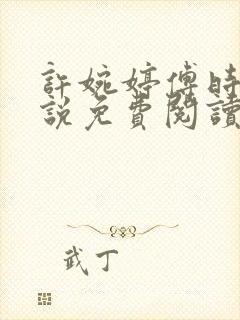 許婉婷傅時
說免費閱讀
武丁